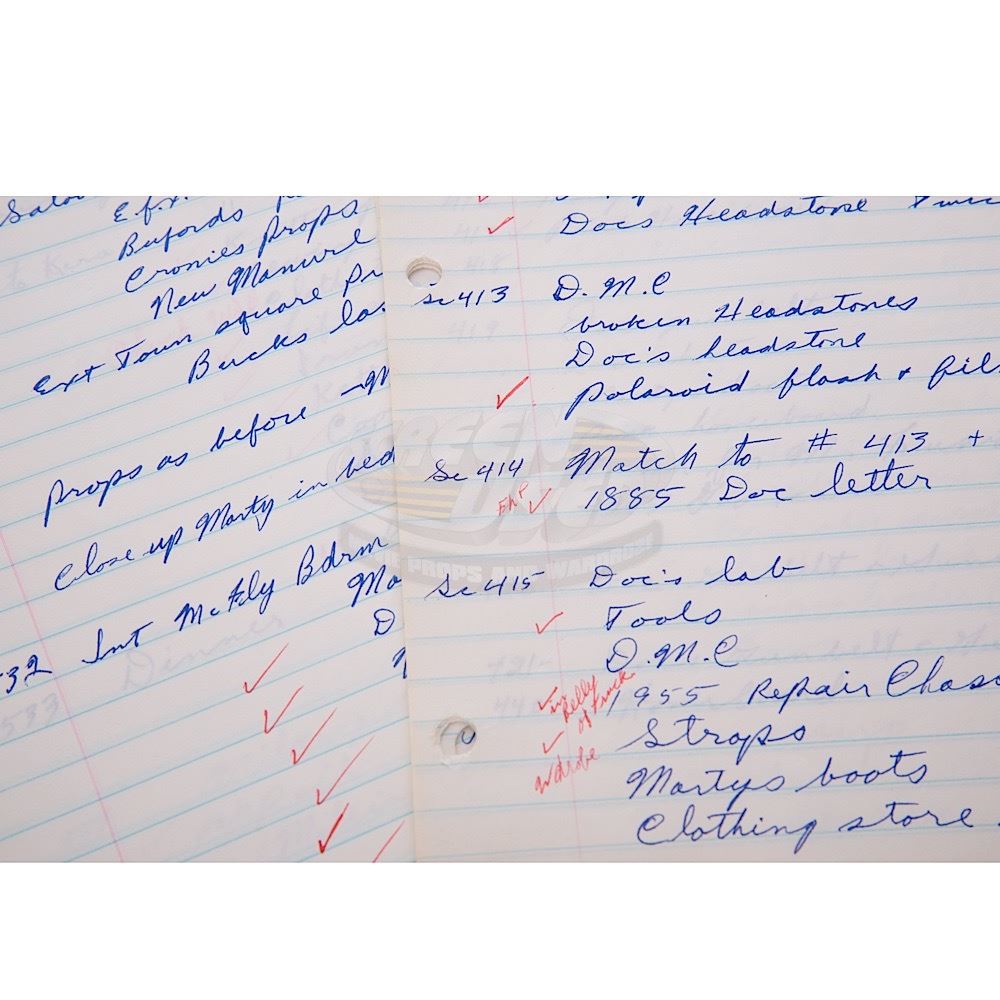 E.f.x.
Bufords
Cronies Props
New Manure
Ext Town square Pr
Bucks la
Props as before - M
Close up Marty in bed
532 Int McFly Bdrm
Ma
D
Dinner
533
Docs Headstone
Sc 413 D.M.C
broken Headstones
Doc's headstone
Polaroid flash + fil
Sc 414 Match to # 413 +
1885 Doc letter
Sc 415 Doc's lab
Tools
D.M.C
in Belly of truck
1955 Repair Chas
Straps
Wdrobe
Martys boots
Clothing store